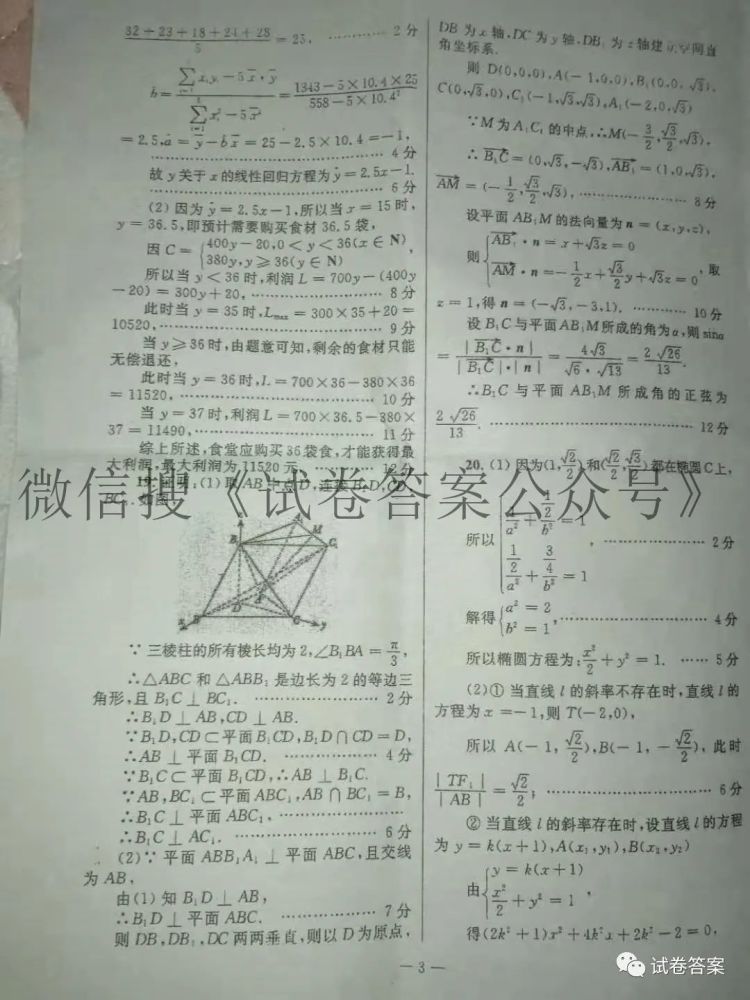 32+23+18+24+28 / 5 = 25. ………… 2分
b̂ = (∑x_i y_i − 5x̄·ȳ) / (∑x_i² − 5x̄²) = (1343−5×10.4×25) / (558−5×10.4²)
= 2.5, â = ȳ − b̂x̄ = 25 − 2.5×10.4 = −1,
………… 4分
故 y 关于 x 的线性回归方程为 ŷ = 2.5x−1.
………… 6分
(2) 因为 ŷ = 2.5x−1, 所以当 x = 15 时,
y = 36.5, 即预计需要购买食材 36.5 袋,
因 C = { 400y−20, 0<y<36(x∈N)
380y, y≥36(y∈N) ,
所以当 y < 36 时, 利润 L = 700y−(400y
−20) = 300y+20, ………… 8分
此时当 y = 35 时, L_max = 300×35+20 =
10520, ………… 9分
当 y≥36 时, 由题意可知, 剩余的食材只能
无偿退还,
此时当 y = 36 时, L = 700×36−380×36
= 11520, ………… 10分
当 y = 37 时, 利润 L = 700×36.5−380×
37 = 11490, ………… 11分
综上所述, 食堂应购买 36 袋食, 才能获得最
大利润, 最大利润为 11520 元. ………… 12分
(1) 取 AB 中点 D, 连接
如图
A₁
M
B₁
C₁
B
D
A
C
x
y
∵ 三棱柱的所有棱长均为 2, ∠B₁BA = π/3,
∴ △ABC 和 △ABB₁ 是边长为 2 的等边三
角形, 且 B₁C ⊥ BC₁. ………… 2分
∴ B₁D ⊥ AB, CD ⊥ AB.
∵ B₁D, CD ⊂ 平面 B₁CD, B₁D ∩ CD = D,
∴ AB ⊥ 平面 B₁CD. ………… 4分
∵ B₁C ⊂ 平面 B₁CD, ∴ AB ⊥ B₁C.
∵ AB, BC₁ ⊂ 平面 ABC₁, AB ∩ BC₁ = B,
∴ B₁C ⊥ 平面 ABC₁, …………
∴ B₁C ⊥ AC₁. ………… 6分
(2) ∵ 平面 ABB₁A₁ ⊥ 平面 ABC, 且交线
为 AB,
由(1) 知 B₁D ⊥ AB,
∴ B₁D ⊥ 平面 ABC. ………… 7分
则 DB, DB₁, DC 两两垂直, 则以 D 为原点,
DB 为 x 轴, DC 为 y 轴, DB₁ 为 z 轴建立空间直
角坐标系.
则 D(0,0,0), A(−1,0,0), B₁(0,0,√3),
C(0,√3,0), C₁(−1,√3,√3), A₁(−2,0,√3)
∵ M 为 A₁C₁ 的中点, ∴ M(−3/2, √3/2, √3),
∴ B₁C = (0,√3,−√3), AB₁ = (1,0,√3),
AM = (−1/2, √3/2, √3), ………… 8分
设平面 AB₁M 的法向量为 n = (x,y,z),
则 { AB₁·n = x+√3z = 0
AM·n = −1/2x+√3/2y+√3z = 0 , 取
z = 1, 得 n = (−√3,−3,1). ………… 10分
设 B₁C 与平面 AB₁M 所成的角为 α, 则 sinα
= |B₁C·n| / |B₁C|·|n| = 4√3 / √6·√13 = 2√26 / 13.
∴ B₁C 与平面 AB₁M 所成角的正弦为
2√26 / 13. ………… 12分
20. (1) 因为(1, √2/2) 和(√2/2, √3/2) 都在椭圆 C 上,
所以 { 1/a² + 1/2/b² = 1
1/2/a² + 3/4/b² = 1 , ………… 2分
解得 { a² = 2
b² = 1 , ………… 4分
所以椭圆方程为: x²/2 + y² = 1. …… 5分
(2) ① 当直线 l 的斜率不存在时, 直线 l 的
方程为 x = −1, 则 T(−2,0),
所以 A(−1, √2/2), B(−1, −√2/2), 此时
|TF₁| / |AB| = √2/2; ………… 6分
② 当直线 l 的斜率存在时, 设直线 l 的方程
为 y = k(x+1), A(x₁,y₁), B(x₂,y₂)
由 { y = k(x+1)
x²/2 + y² = 1 ,
得 (2k²+1)x²+4k²x+2k²−2 = 0,
— 3 —
微信搜《试卷答案公众号》
试卷答案